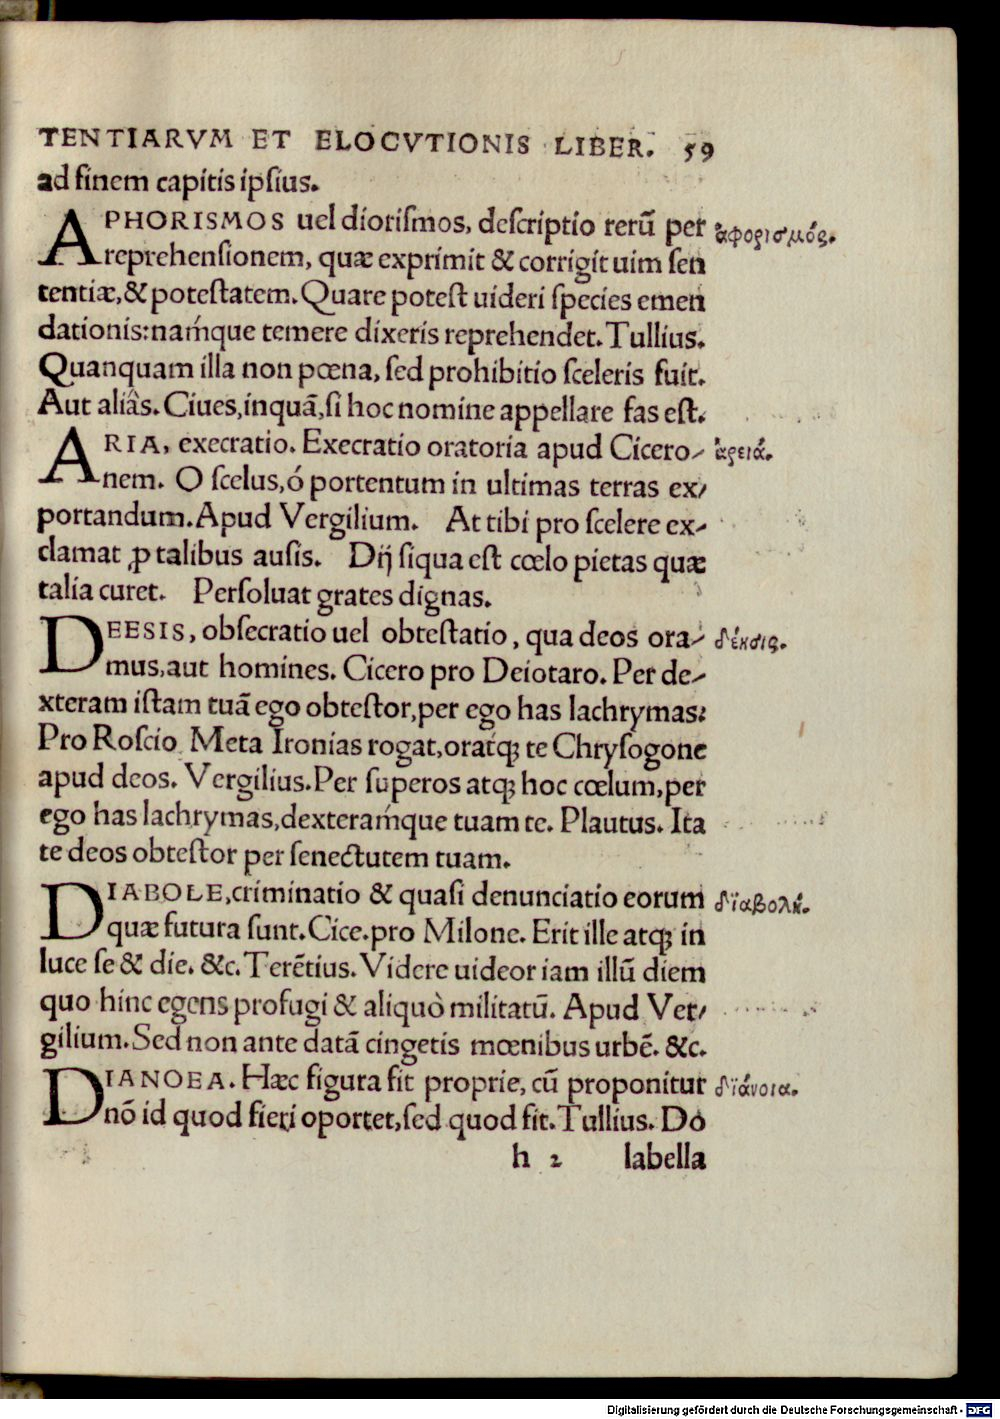 TENTIARVM ET ELOCVTIONIS LIBER. 59
ad finem capitis ipsius.
APHORISMOS uel diorismos, descriptio rerũ per ἀφορισμός.
reprehensionem, quæ exprimit & corrigit uim sen
tentiæ, & potestatem. Quare potest uideri species emen
dationis: naḿque temere dixeris reprehendet. Tullius.
Quanquam illa non pœna, sed prohibitio sceleris fuit.
Aut aliâs. Ciues, inquã, si hoc nomine appellare fas est.
ARIA, execratio. Execratio oratoria apud Cicero- ἀρειά.
nem. O scelus, ó portentum in ultimas terras ex/
portandum. Apud Vergilium. At tibi pro scelere ex-
clamat ꝓ talibus ausis. Dij siqua est cœlo pietas quæ
talia curet. Persoluat grates dignas.
DEESIS, obsecratio uel obtestatio, qua deos ora- δέησις.
mus, aut homines. Cicero pro Deiotaro. Per de-
xteram istam tuã ego obtestor, per ego has lachrymas:
Pro Roscio Meta Ironias rogat, oratq́; te Chrysogone
apud deos. Vergilius. Per superos atq; hoc cœlum, per
ego has lachrymas, dexteraḿque tuam te. Plautus. Ita
te deos obtestor per senectutem tuam.
DIABOLE, criminatio & quasi denunciatio eorum δϊαβολή.
quæ futura sunt. Cice. pro Milone. Erit ille atq; in
luce se & die. &c. Terẽtius. Videre uideor iam illũ diem
quo hinc egens profugi & aliquò militatũ. Apud Ver/
gilium. Sed non ante datã cingetis mœnibus urbẽ. &c.
DIANOEA. Hæc figura fit proprie, cũ proponitur δϊάνοια.
nõ id quod fieri oportet, sed quod fit. Tullius. Do
h 2 labella
Digitalisierung gefördert durch die Deutsche Forschungsgemeinschaft - DFG